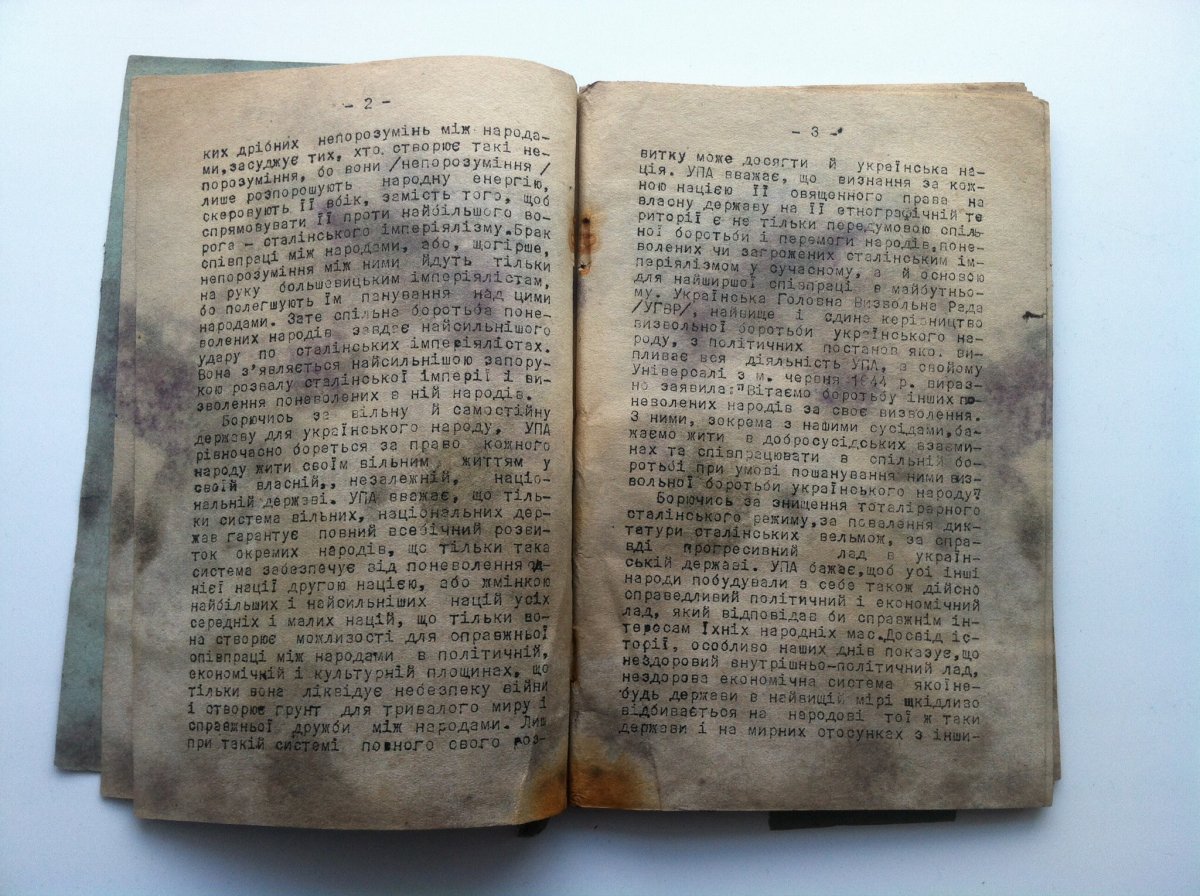 - 2 -
ких дрібних непорозумінь між народа-
ми, засуджує тих, хто створює такі не-
порозуміння, бо вони /непорозуміння/
лише розпорошують народну енергію,
скеровують її вбік, замість того, щоб
спрямовувати її проти найбільшого во-
рога - сталінського імперіялізму. Брак
співпраці між народами, або, щогірше,
непорозуміння між ними йдуть тільки
на руку большевицьким імперіялістам,
бо полегшують їм панування над цими
народами. Зате спільна боротьба поне-
волених народів завдає найсильнішого
удару по сталінських імперіялістах.
Вона з'являється найсильнішою запору-
кою розвалу сталінської імперії і ви-
зволення поневолених в ній народів.
Борючись за вільну й самостійну
державу для українського народу, УПА
рівночасно бореться за право кожного
народу жити своїм вільним життям у
своїй власній,, незалежній, націо-
нальній державі. УПА вважає, що тіль-
ки система вільних, національних дер-
жав гарантує повний всебічний розви-
ток окремих народів, що тільки така
система забезпечує від поневолення од-
нієї нації другою нацією, або жмінкою
найбільших і найсильніших націй усіх
середніх і малих націй, що тільки во-
на створює можливості для справжньої
співпраці між народами в політичній,
економічній і культурній площинах, що
тільки вона ліквідує небезпеку війни
і створює грунт для тривалого миру і
справжньої дружби між народами. Лиш
при такій системі повного свого роз-
- 3 -
витку може досягти й українська на-
ція. УПА вважає, що визнання за кож-
ною нацією її священного права на
власну державу на її етнографічній те
риторії є не тільки передумовою спіль-
ної боротьби і перемоги народів, поне-
волених чи загрожених сталінським ім-
періялізмом у сучасному, а й основою
для найширшої співпраці в майбутньо-
му. Українська Головна Визвольна Рада
/УГВР/, найвище і єдине керівництво
визвольної боротьби українського на-
роду, з політичних постанов якої ви-
пливає вся діяльність УПА, в свойому
Універсалі з м. червня 1944 р. вираз-
но заявила: "Вітаємо боротьбу інших по-
неволених народів за своє визволення.
З ними, зокрема з нашими сусідами, ба-
жаємо жити в добросусідських взаєми-
нах та співпрацювати в спільній бо-
ротьбі при умові пошанування ними виз-
вольної боротьби українського народу"
Борючись за знищення тоталірарного
сталінського режиму, за повалення дик-
татури сталінських вельмож, за спра-
вді прогресивний лад в україн-
ській державі. УПА бажає, щоб усі інші
народи побудували в себе також дійсно
справедливий політичний і економічний
лад, який відповідав би справжнім ін-
тересам їхніх народніх мас. Досвід іс-
торії, особливо наших днів показує, що
нездоровий внутрішньо-політичний лад,
нездорова економічна система якоїне-
будь держави в найвищій мірі щкідливо
відбивається на народові тої ж таки
держави і на мирних стосунках з інши-